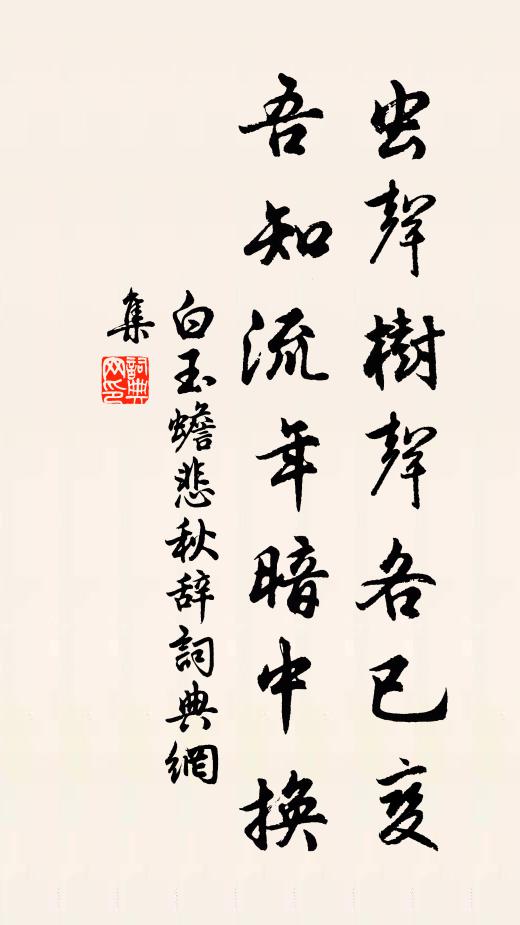 虫聲樹聲各已变
吾知流年暗中換
白玉蟾悲秋辞詞典網
集
詞典网印